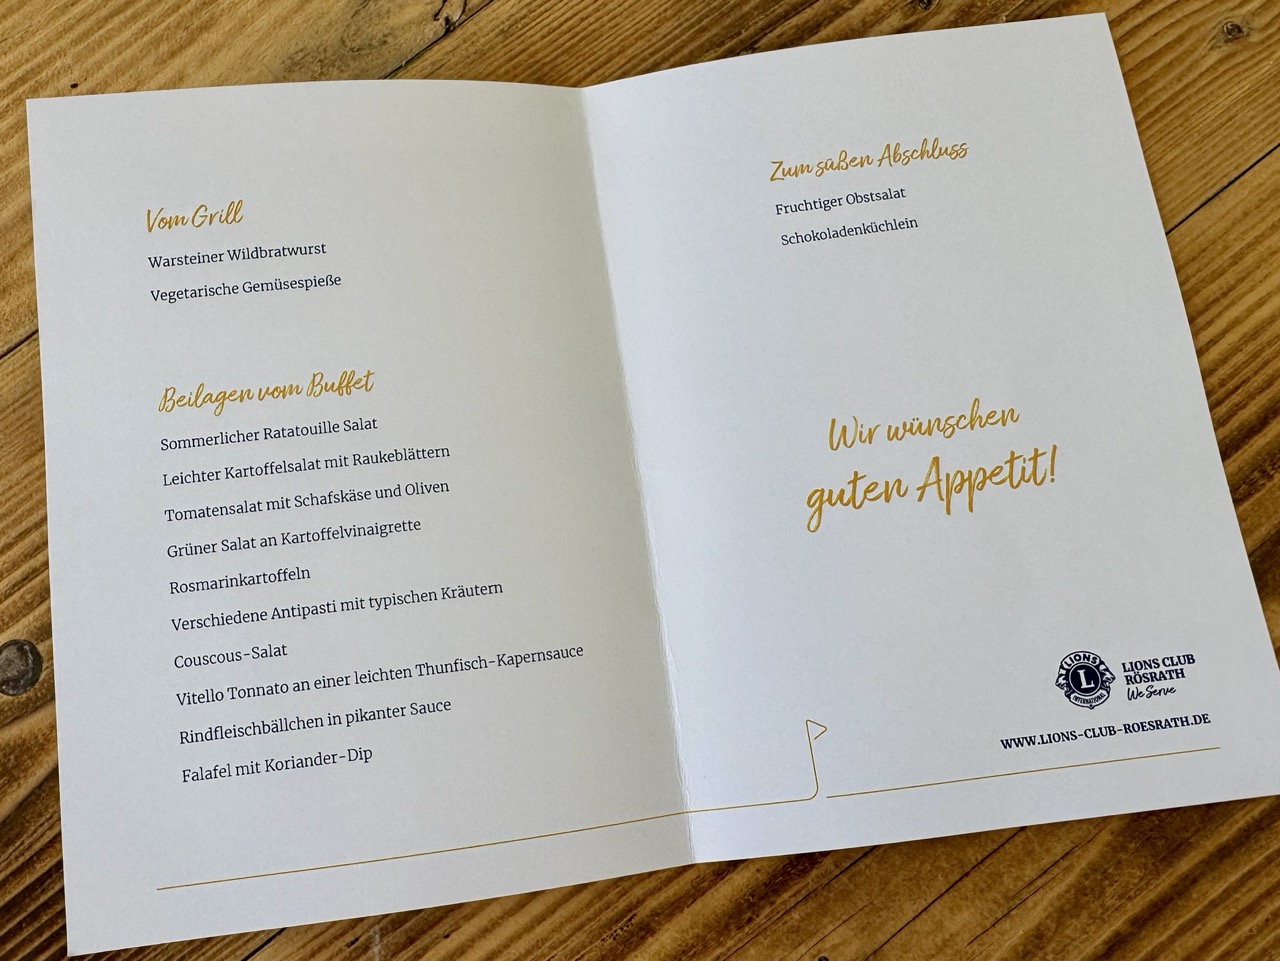 Vom Grill
Warsteiner Wildbratwurst
Vegetarische Gemüsespieße
Beilagen vom Buffet
Sommerlicher Ratatouille Salat
Leichter Kartoffelsalat mit Raukeblättern
Tomatensalat mit Schafskäse und Oliven
Grüner Salat an Kartoffelvinaigrette
Rosmarinkartoffeln
Verschiedene Antipasti mit typischen Kräutern
Couscous-Salat
Vitello Tonnato an einer leichten Thunfisch-Kapernsauce
Rindfleischbällchen in pikanter Sauce
Falafel mit Koriander-Dip
Zum süßen Abschluss
Fruchtiger Obstsalat
Schokoladenküchlein
Wir wünschen
guten Appetit!
LIONS
L
INTERNATIONAL
LIONS CLUB
RÖSRATH
We Serve
WWW.LIONS-CLUB-ROESRATH.DE